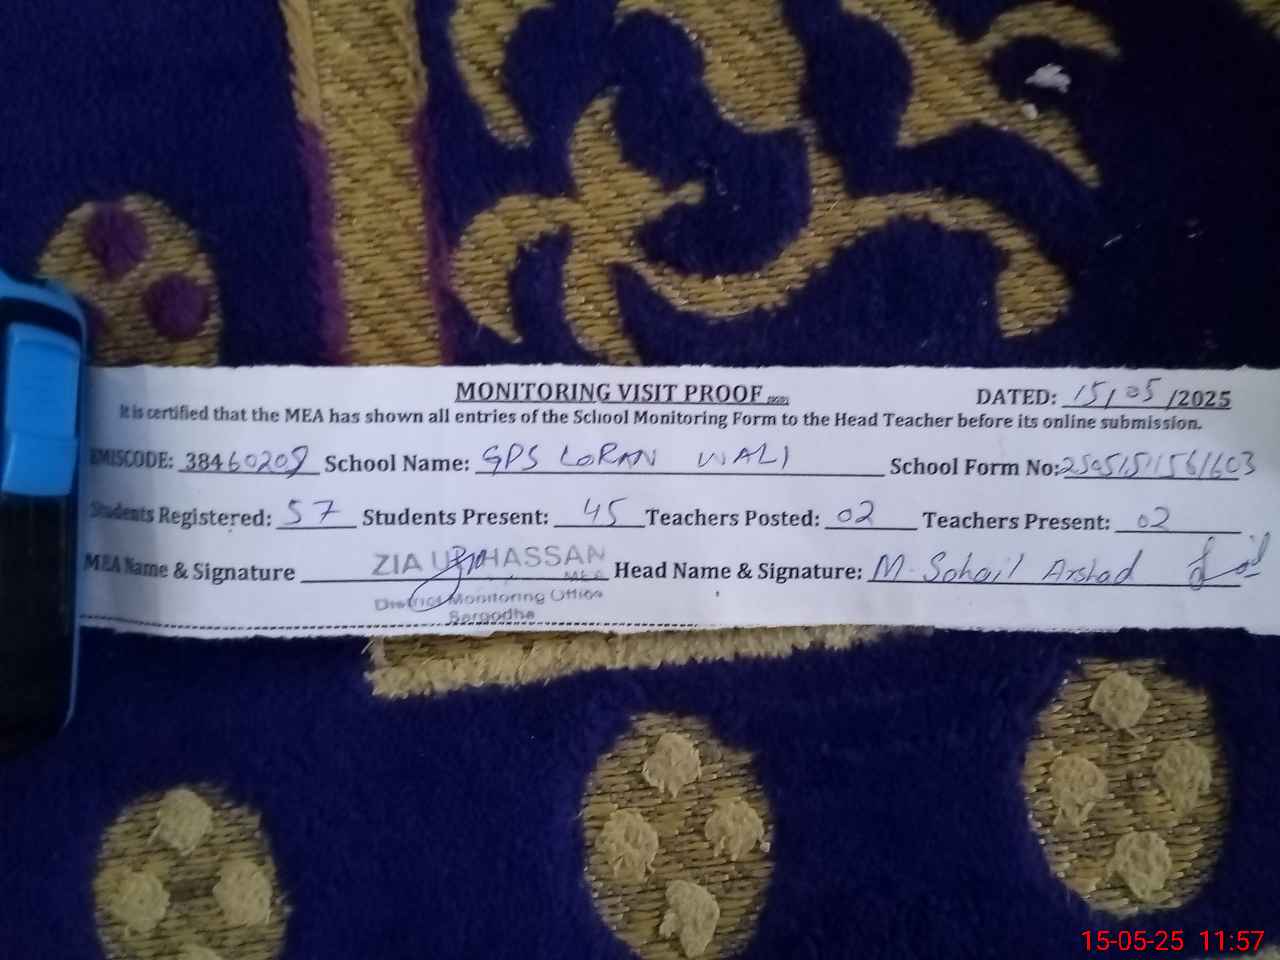 MONITORING VISIT PROOF
DATED: 15/05/2025
It is certified that the MEA has shown all entries of the School Monitoring Form to the Head Teacher before its online submission.
EMISCODE: 38460209 School Name: GPS LORAN WALI School Form No:
Students Registered: 57 Students Present: 45 Teachers Posted: 02 Teachers Present: 02
MEA Name & Signature ZIA UL HASSAN Head Name & Signature: M. Sohail Arshad
MEA
District Monitoring Office
Sargodha
15-05-25 11:57